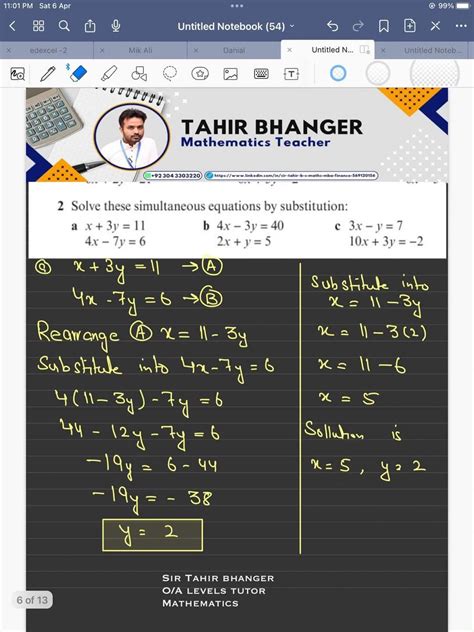 11:01 PM Sat 6 Apr
99%
Untitled Notebook (54)
edexcel -2
Mik Ali
Danial
Untitled N...
Untitled Noteb...
TAHIR BHANGER
Mathematics Teacher
+92 304 3303220
2 Solve these simultaneous equations by substitution:
a x + 3y = 11
4x − 7y = 6
b 4x − 3y = 40
2x + y = 5
c 3x − y = 7
10x + 3y = −2
a x + 3y = 11 → A
4x - 7y = 6 → B
Rearrange A x = 11 - 3y
Substitute into 4x - 7y = 6
4(11 - 3y) - 7y = 6
44 - 12y - 7y = 6
-19y = 6 - 44
-19y = - 38
y = 2
Substitute into
x = 11 - 3y
x = 11 - 3(2)
x = 11 - 6
x = 5
Sollution is
x = 5, y = 2
SIR TAHIR BHANGER
O/A LEVELS TUTOR
MATHEMATICS
6 of 13